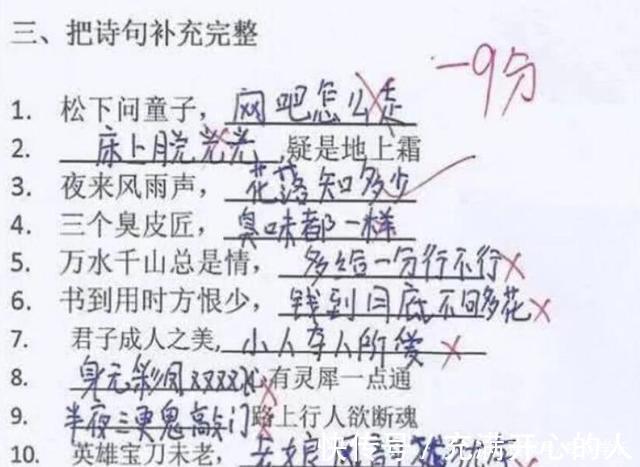 三、把诗句补充完整
-9分
1. 松下问童子，网吧怎么走
2. 床上脱光光,疑是地上霜
3. 夜来风雨声，花落知多少
4. 三个臭皮匠，臭味都一样
5. 万水千山总是情，多给一分行不行
6. 书到用时方恨少，钱到月底不回多花
7. 君子成人之美,小人夺人所爱
8. 身无彩凤双双飞，有灵犀一点通
9. 半夜三更鬼敲门路上行人欲断魂
10. 英雄宝刀未老，老娘
快传号 / 充满开心的人